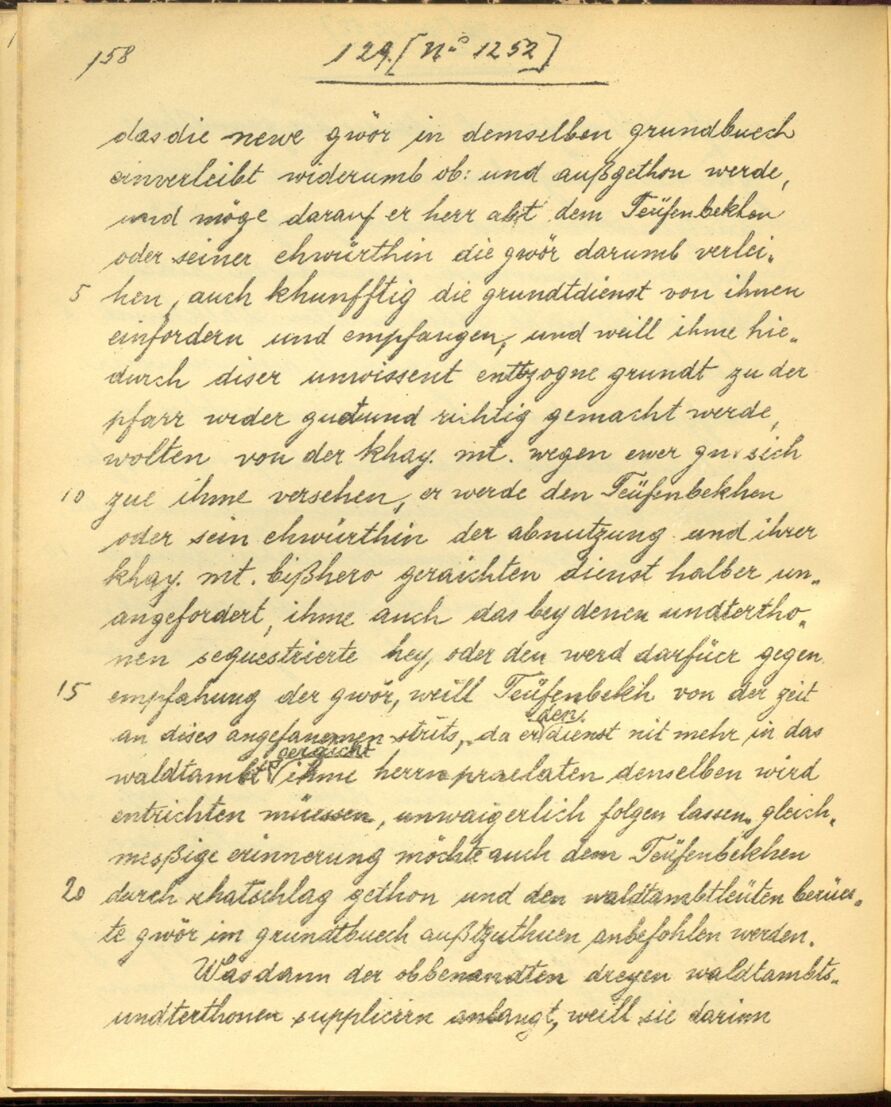 158 129. [No 1252]
das die newe gwör in demselben grundbuech
einverleibt widerumb ob: und außgethon werde,
und möge darauf er herr abt dem Teüfenbekhen
oder seiner ehwürthin die gwör darumb verlei„
5 hen, auch khunfftig die grundtdienst von ihnen
einfordern und empfangen, und weill ihme hie„
durch diser unwissent enttzogne grundt zu der
pfarr wider guet und richtig gemacht werde,
wolten von der khay. mt. wegen ewer gn. sich
10 zue ihme versehen, er werde den Teüfenbekhen
oder sein ehwürthin der abnutzung und ihrer
khay. mt. bißhero geraichten dienst halber un„
angefordert, ihme auch das bey denen undtertho„
nen sequestrierte hey, oder den werd darfüer gegen
15 empfahung der gwör, weill Teüfenbekh von der zeit
an dises angefangnen strits, da er den dienst nit mehr in das
waldtambt geraicht ihme herrn praelaten denselben wird
entrichten müessen, unwaigerlich folgen lassen. gleich„
meßßige erinnerung möchte auch dem Teüfenbekhen
20 durch rhatschlag gethon und den waldtambtleüten berüer„
te gwör im grundtbuech außtzuthuen anbefohlen werden.
Was dann der obbenandten dreyen waldtambts„
undterthonen supplicirn anlangt, weill sie darinn